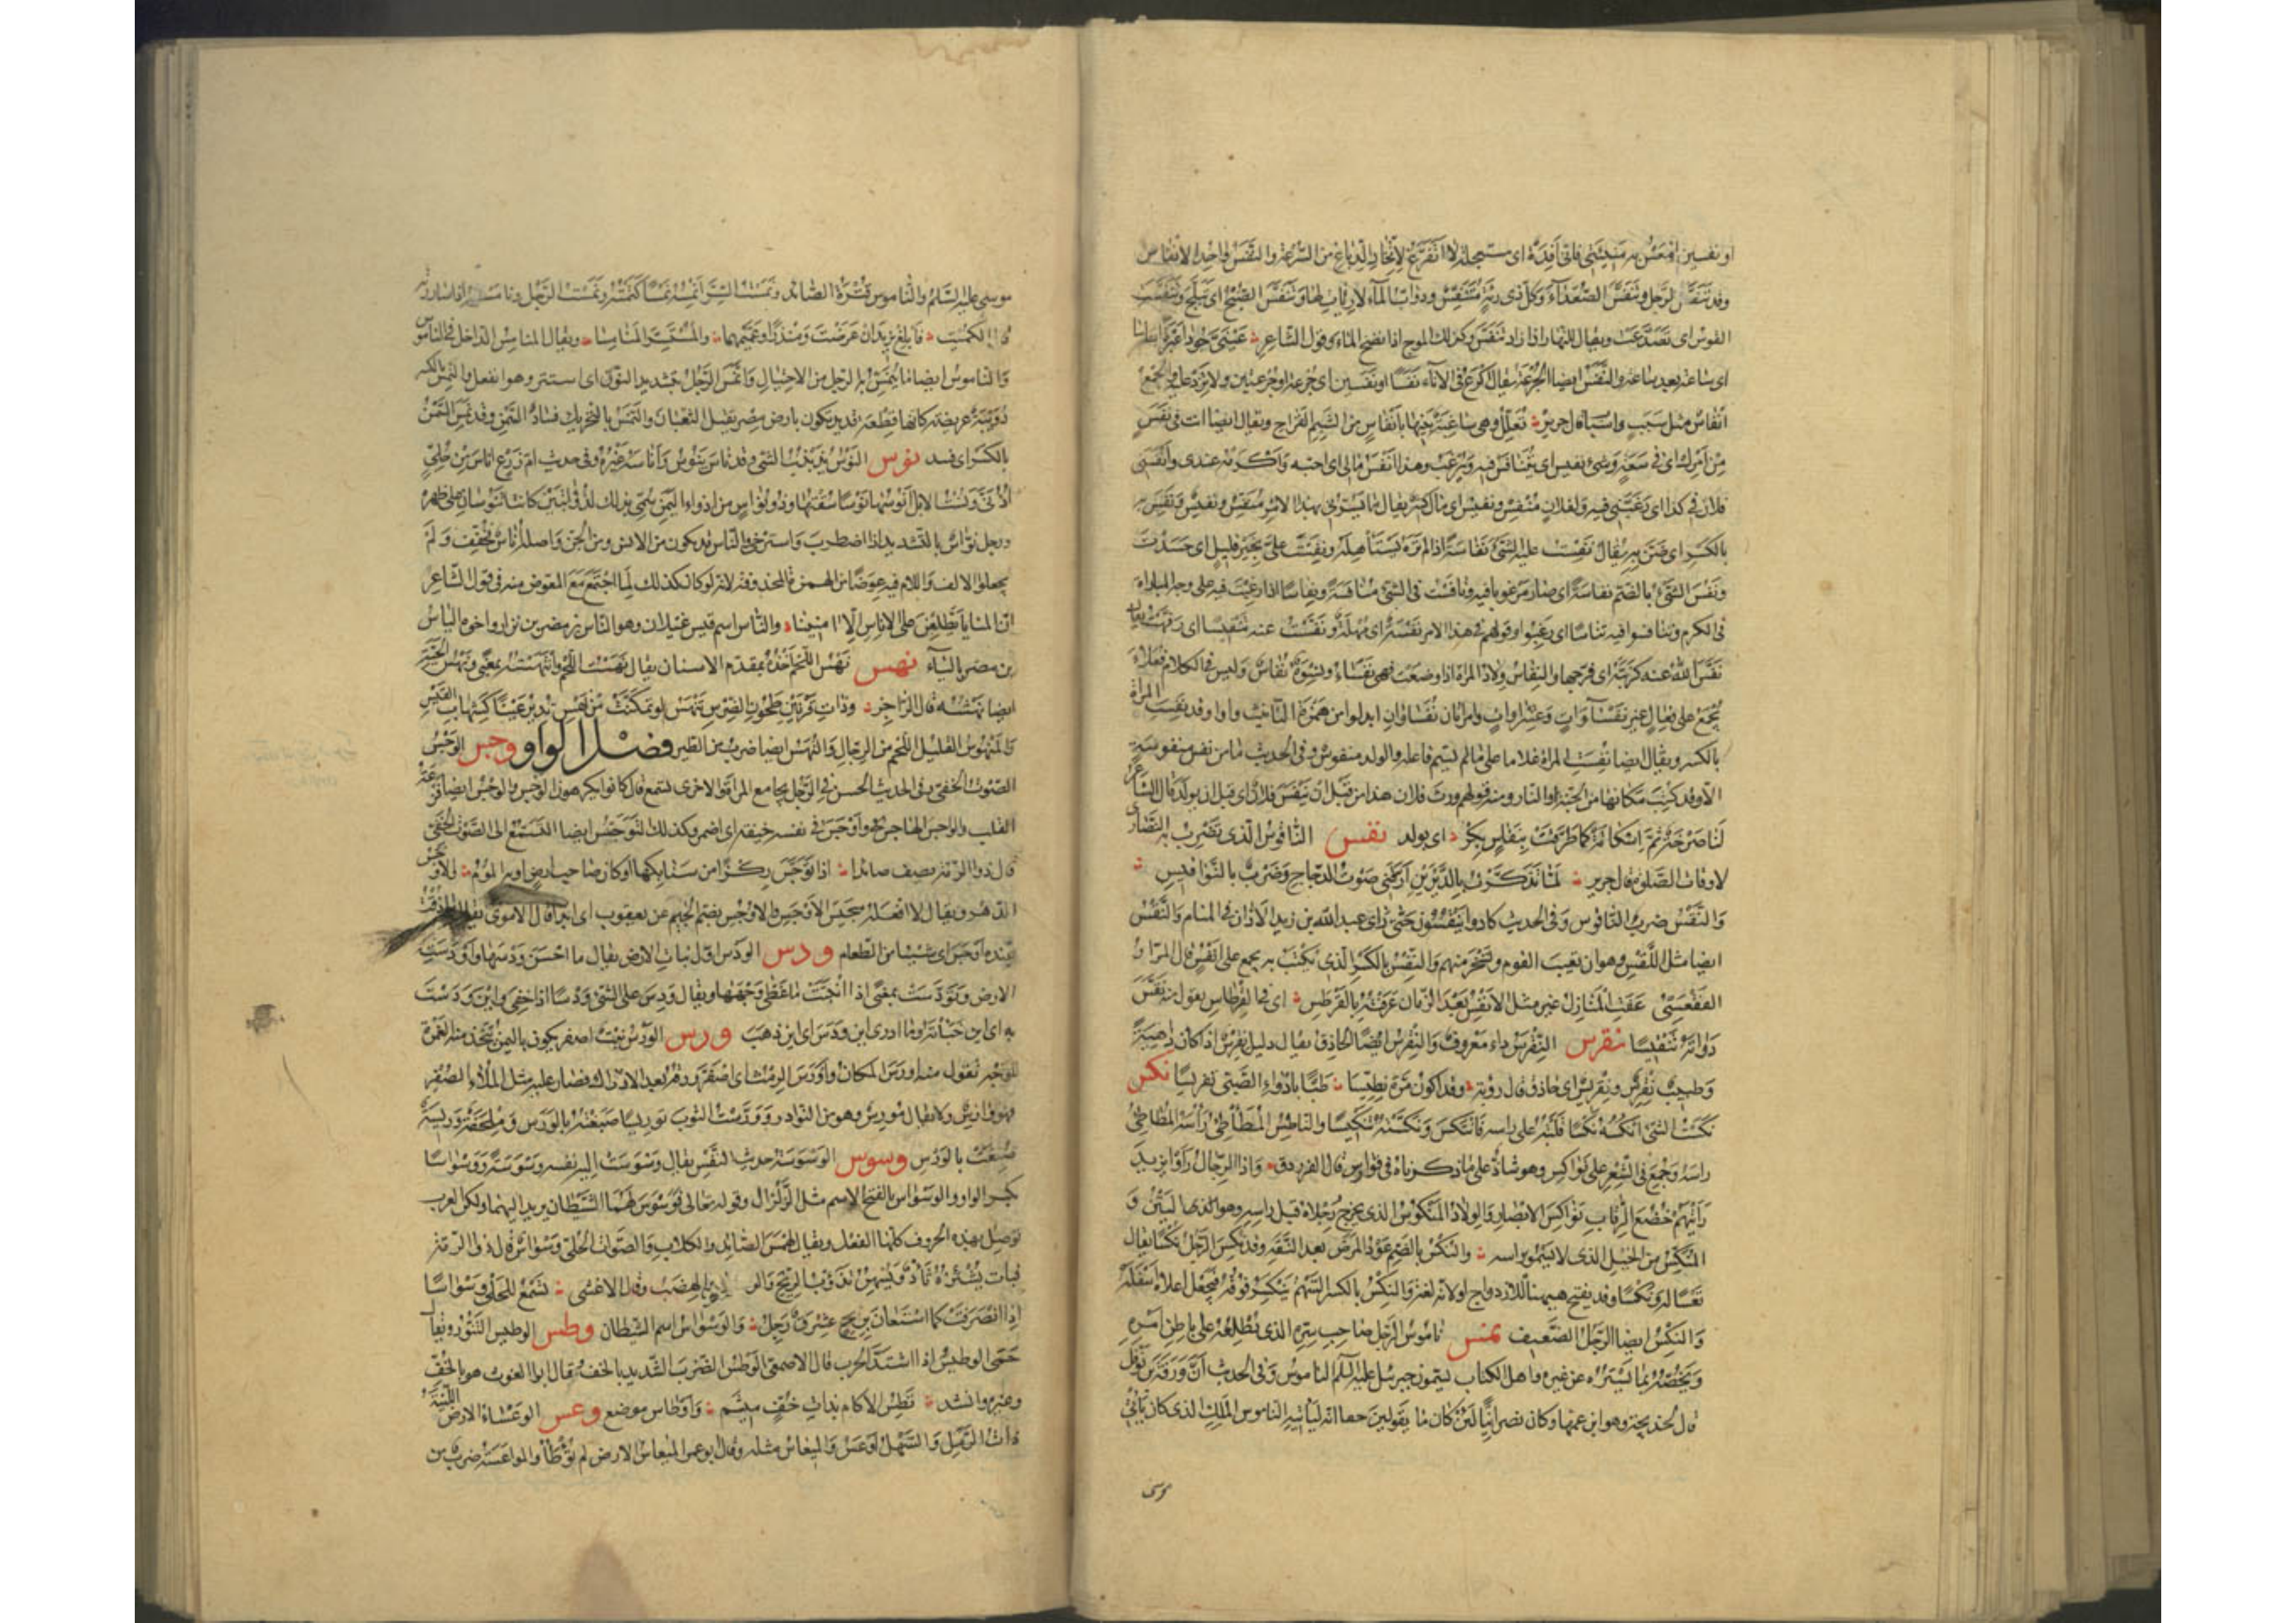 او نفسين امعس به منيئتي فاني افدة اى مستعجلة لا اتفرغ لاتخاذ الدباغ من السرعة والنفس واحد الانفاس
وقد تنفس الرجل وتنفس الصعداء وكل ذى رئة متنفس ودواب الماء لا رئات لها وتنفس الصبح اى تبلج وتنفست
القوس اى تصدعت ويقال للنهار اذا زاد تنفس وكذلك الموج اذا نضح الماء وقول الشاعر عينى جودا عبرة انفاسا
اى ساعة بعد ساعة والنفس ايضا الجرعة يقال اكرع فى الاناء نفسا او نفسين اى جرعة او جرعتين ولا تزد عليه والجمع
انفاس مثل سبب واسباب قال جرير تعلل وهى ساغبة بنيها بانفاس من الشبم القراح ويقال ايضا انت فى نفس
من امرك اى فى سعة وشىء نفيس اى يتنافس فيه ويرغب وهذا انفس مالى اى احبه واكرمه عندى وانفسنى
فلان فى كذا اى رغبنى فيه ولفلان منفس ونفيس اى مال كثير يقال ما يسرنى بهذا الامر منفس ونفيس ونفس به
بالكسر اى ضن به يقال نفست عليه الشىء نفاسة اذا لم تره يستاهله ونفست على بخير قليل اى حسدت
ونفس الشىء بالضم نفاسة اى صار مرغوبا فيه ونافست فى الشىء منافسة ونفاسا اذا رغبت فيه على وجه المباراة
فى الكرم وتنافسوا فيه تنافسا اى رغبوا وقولهم فى هذا الامر نفسة اى مهلة ونفست عنه تنفيسا اى رفهت يقال
نفس الله عنه كربته اى فرجها والنفاس ولاد المراة اذا وضعت فهى نفساء ونسوة نفاس وليس فى الكلام فعلاء
يجمع على فعال غير نفساء وعشراء ويجمع ايضا على نفساوات وعشراوات وامراتان نفساوان ابدلوا من همزة التانيث واوا وقد نفست المراة
بالكسر ويقال ايضا نفست المراة غلاما على ما لم يسم فاعله والولد منفوس وفى الحديث ما من نفس منفوسة
الا وقد كتب مكانها من الجنة او النار ومنه قولهم ورث فلان هذا من قبل ان ينفس فلان اى قبل ان يولد قال الشاعر
لنا صرخة ثم اسكاتة كما طرقت بنفاس بكر اى بولد نقس الناقوس الذى تضرب به النصارى
لاوقات الصلوة قال جرير لما تذكرت بالديرين ارقنى صوت الدجاج وضرب بالنواقيس
والنقس ضرب الناقوس وفى الحديث كادوا ينقسون حتى راى عبد الله بن زيد الاذان فى المنام والنقس
ايضا مثل اللقس وهو ان تعيب القوم وتسخر منهم والنقس بالكسر الذى يكتب به يجمع على انقس قال المرار
الفقعسى عفت المنازل غير مثل الانقس بعد الزمان عرفته بالقرطس اى فى القرطاس يقول منه نقس
دواته تنقيسا نقرس النقرس داء معروف والنقرس ايضا الحاذق يقال دليل نقرس اذا كان داهية
وطبيب نقرس ونقريس اى حاذق قال رؤبة وقد اكون مرة نطيسا طبا بادواء الصبى نقريسا نكس
نكست الشىء انكسه نكسا قلبته على راسه فانتكس ونكسته تنكيسا والناكس المطاطئ راسه
راسه وجمع فى الشعر على نواكس وهو شاذ على ما ذكرناه فى فوارس قال الفرزدق واذا الرجال راوا يزيد
رايتهم خضع الرقاب نواكس الابصار والولاد المنكوس الذى يخرج رجلاه قبل راسه وهو الذى اليتن و
المنكس من الخيل الذى لا يسمو براسه والنكس بالضم عود المرض بعد النقه وقد نكس الرجل نكسا يقال
تعسا له ونكسا وقد يفتح ههنا للازدواج او لانه لغة والنكس بالكسر السهم ينكسر فوقه فيجعل اعلاه اسفله
والنكس ايضا الرجل الضعيف نمس ناموس الرجل صاحب سره الذى يطلعه على باطن امره
ويخصه بما يستره عن غيره واهل الكتاب يسمون جبرئيل عليه السلم الناموس وفى الحديث ان ورقة بن نوفل
قال لخديجة وهو ابن عمها وكان نصرانيا لئن كان ما يقولين حقا انه لياتيه الناموس الملك الذى كان ياتى
موسى
موسى عليه السلم والناموس قترة الصائد ونمست السر انمسه نمسا كتمته ونمست الرجل ونامسته اذا ساررته
قال الكميت فابلغ يزيد ان عرضت ومنذرا وعميهما والمستسر المنامسا ويقال المنامس الداخل فى الناموس
والناموس ايضا ما ينمس به الرجل من الاحتيال وانمس الرجل بتشديد النون اى استتر وهو انفعل والنمس بالكسر
دويبة عريضة كانها قطعة قديد تكون بارض مصر يقتل الثعبان والنمس بالتحريك فساد السمن وقد نمس السمن
بالكسر اى فسد نوس النوس تذبذب الشىء وقد ناس ينوس واناسه غيره وفى حديث ام زرع اناس من حلى
اذنى ونست الابل انوسها نوسا سقتها وذو نواس من اذواء اليمن سمى بذلك لذؤابتين كانتا تنوسان على ظهره
ورجل نواس بالتشديد اذا اضطرب واسترخى والناس قد يكون من الانس ومن الجن واصله اناس فخفف ولم
يجعلوا الالف واللام فيه عوضا من الهمزة المحذوفة لانه لو كان كذلك لما اجتمع مع المعوض منه فى قول الشاعر
ان المنايا يطلعن على الاناس الآمنينا والناس اسم قيس عيلان وهو الناس بن مضر بن نزار واخوه الياس
بن مضر بالياء نهس نهس اللحم اخذه بمقدم الاسنان يقال نهست اللحم وانتهسته بمعنى ونهس الحية
ايضا نهشه قال الراجز وذات قرنين طحون الضرس تنهس لو تمكنت من نهس تدير عينا كشهاب القبس
والمنهوس القليل اللحم من الرجال والنهس ايضا ضرب من الطير فصل الواو وجس الوجس
الصوت الخفى وفى الحديث الحسن فى الرجل يجامع المراة والاخرى تسمع قال كانوا يكرهون الوجس والوجس ايضا فزعة
القلب والواجس الهاجس واوجس فى نفسه خيفة اى اضمر وكذلك التوجس والتوجس ايضا التسمع الى الصوت الخفى
قال ذو الرمة يصف صائدا اذا توجس ركزا من سنابكها او كان صاحب ارض او به الموم والاوجس
الدهر ويقال لا افعله سجيس الاوجس والاوجس بضم الجيم عن يعقوب اى ابدا قال الاموى يقال ما ذقت
عنده اوجس اى شيئا من الطعام ودس الودس اول نبات الارض يقال ما احسن ودسها واودست
الارض وتودست بمعنى اذا انبتت ما غطى وجهها ويقال ودس على الشىء ودسا اذا خفى واين ودست
به اى اين خباته وما ادرى اين ودس اى اين ذهب ورس الورس نبت اصفر يكون باليمن تتخذ منه الغمرة
للوجه تقول منه اورس المكان واورس الرمث اى اصفر ورقه بعد الادراك فصار عليه مثل الملاء الصفر
فهو وارس ولا يقال مورس وهو من النوادر وورست الثوب توريسا صبغته بالورس وملحفة وريسة
صبغت بالورس وسوس الوسوسة حديث النفس يقال وسوست اليه نفسه وسوسة ووسواسا
بكسر الواو والوسواس بالفتح الاسم مثل الزلزال وقوله تعالى فوسوس لهما الشيطان يريد اليهما ولكن العرب
توصل بهذه الحروف كلها الفعل ويقال لهمس الصائد والكلاب واصوات الحلى وسواس قال ذو الرمة
فبات يشئزه ثاد ويسهره تذؤب الريح والوسواس والهضب وقال الاعشى تسمع للحلى وسواسا
اذا انصرفت كما استعان بريح عشرق زجل والوسواس اسم الشيطان وطس الوطيس التنور ويقال
حمى الوطيس اذا اشتد الحرب قال الاصمعى الوطس الضرب الشديد بالخف وقال ابو الغوث هو بالخف
وغيره وانشد تطس الاكام بذات خف ميثم واوطاس موضع وعس الوعساء الارض اللينة
ذات الرمل والسهل اوعس والميعاس مثله وقال ابو عمرو الميعاس الارض لم توطا والمواعسة ضرب من